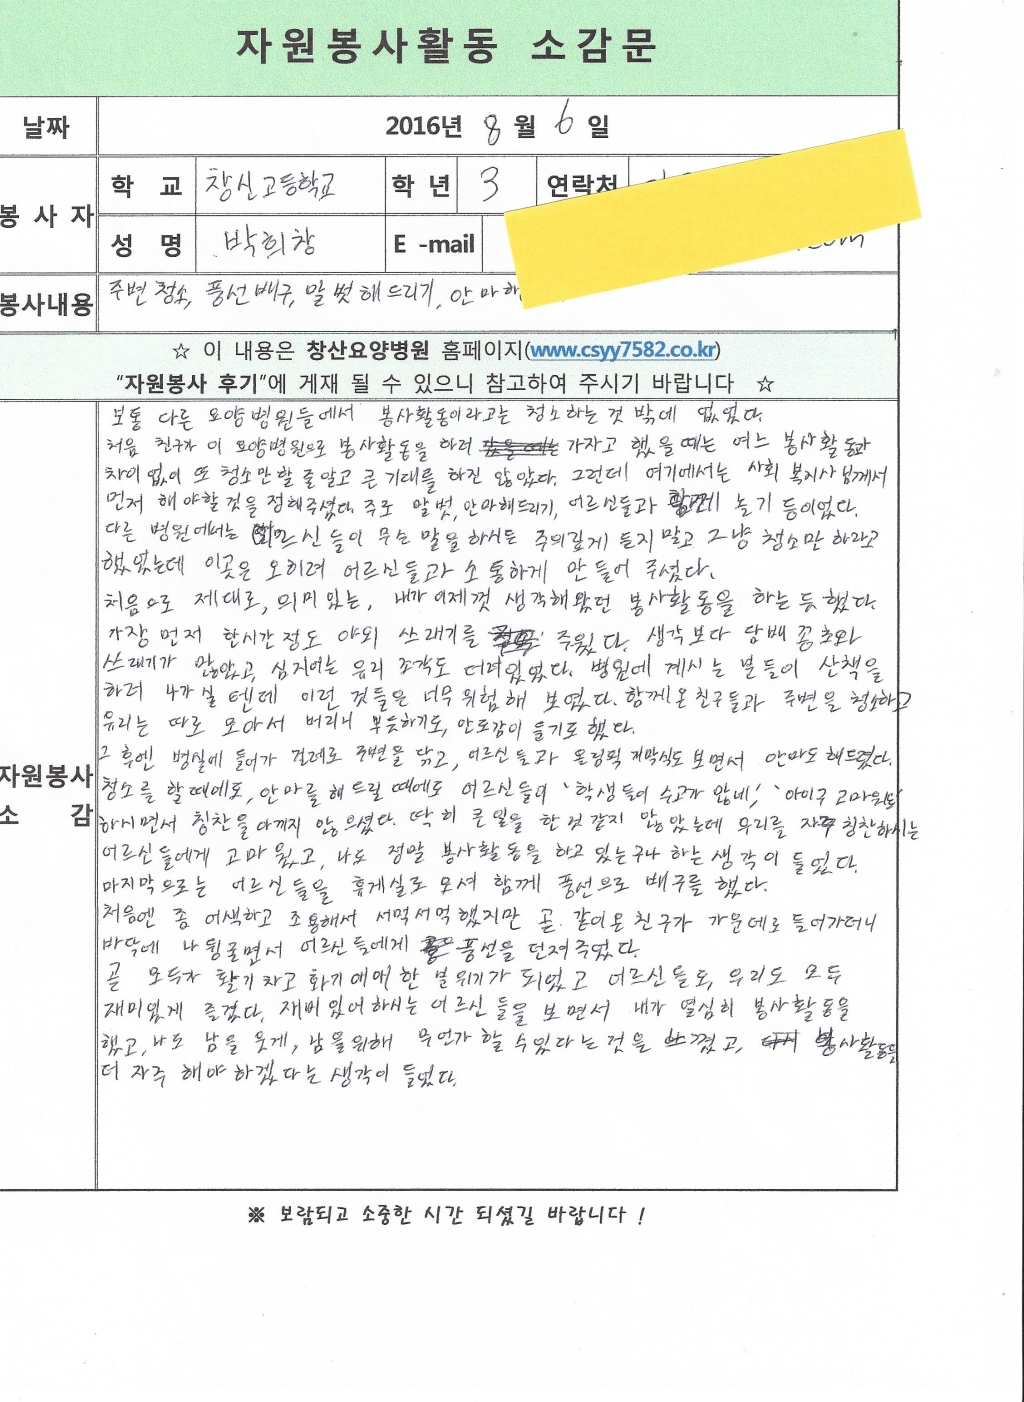 자원봉사활동 소감문
날짜 2016년 8월 6일
봉사자 학 교 창신고등학교 학년 3 연락처
성 명 박희창 E -mail
봉사내용 주변 청소, 풍선배구, 말벗해드리기, 안마해
☆ 이 내용은 창산요양병원 홈페이지(www.csyy7582.co.kr)
“자원봉사 후기”에 게재 될 수 있으니 참고하여 주시기 바랍니다 ☆
자원봉사 소 감
보통 다른 요양병원들에서 봉사활동이라고는 청소하는 것 밖에 없었다.
처음 친구가 이 요양병원으로 봉사활동을 하러 가자고 했을 때는 여느 봉사활동과
차이없이 또 청소만 할 줄 알고 큰 기대를 하진 않았다. 그런데 여기에서는 사회 복지사님께서
먼저 해야할 것을 정해주셨다. 주로 말벗, 안마해드리기, 어르신들과 함께 놀기 등이었다.
다른 병원에서는 어르신들이 무슨 말을 하시든 주의깊게 듣지 말고 그냥 청소만 하라고
했었는데 이곳은 오히려 어르신들과 소통하게 만들어 주셨다.
처음으로 제대로, 의미있는, 내가 이제껏 생각해왔던 봉사활동을 하는 듯 했다.
가장 먼저 한시간 정도 야외 쓰래기를 주웠다. 생각보다 담배 꽁초와
쓰래기가 많았고, 심지어는 유리 조각도 더러 있었다. 병원에 계시는 분들이 산책을
하러 나가실 텐데 이런 것들은 너무 위험해 보였다. 함께온 친구들과 주변을 청소하고
유리는 따로 모아서 버리니 뿌듯하기도, 안도감이 들기도 했다.
그 후엔 병실에 들어가 걸레로 주변을 닦고, 어르신들과 올림픽 개막식도 보면서 안마도 해드렸다.
청소를 할 때에도, 안마를 해드릴 때에도 어르신들이 '학생들이 수고가 많네', '아이구 고마워라'
하시면서 칭찬을 아끼지 않으셨다. 딱히 큰 일을 한 것 같지 않았는데 우리를 자꾸 칭찬하시는
어르신들에게 고마웠고, 나도 정말 봉사활동을 하고 있는구나 하는 생각이 들었다.
마지막으로는 어르신들을 휴게실로 모셔 함께 풍선으로 배구를 했다.
처음엔 좀 어색하고 조용해서 서먹서먹했지만 곧 같이온 친구가 가운데로 들어가더니
바닥에 나뒹굴면서 어르신들에게 풍선을 던져주었다.
곧 모두가 활기차고 화기애애한 분위기가 되었고 어르신들도, 우리도 모두
재미있게 즐겼다. 재미있어하시는 어르신들을 보면서 내가 열심히 봉사활동을
했고, 나도 남을 웃게, 남을위해 무언가 할 수있다는 것을 느꼈고, 봉사활동을
더 자주 해야하겠다는 생각이 들었다.
※ 보람되고 소중한 시간 되셨길 바랍니다 !